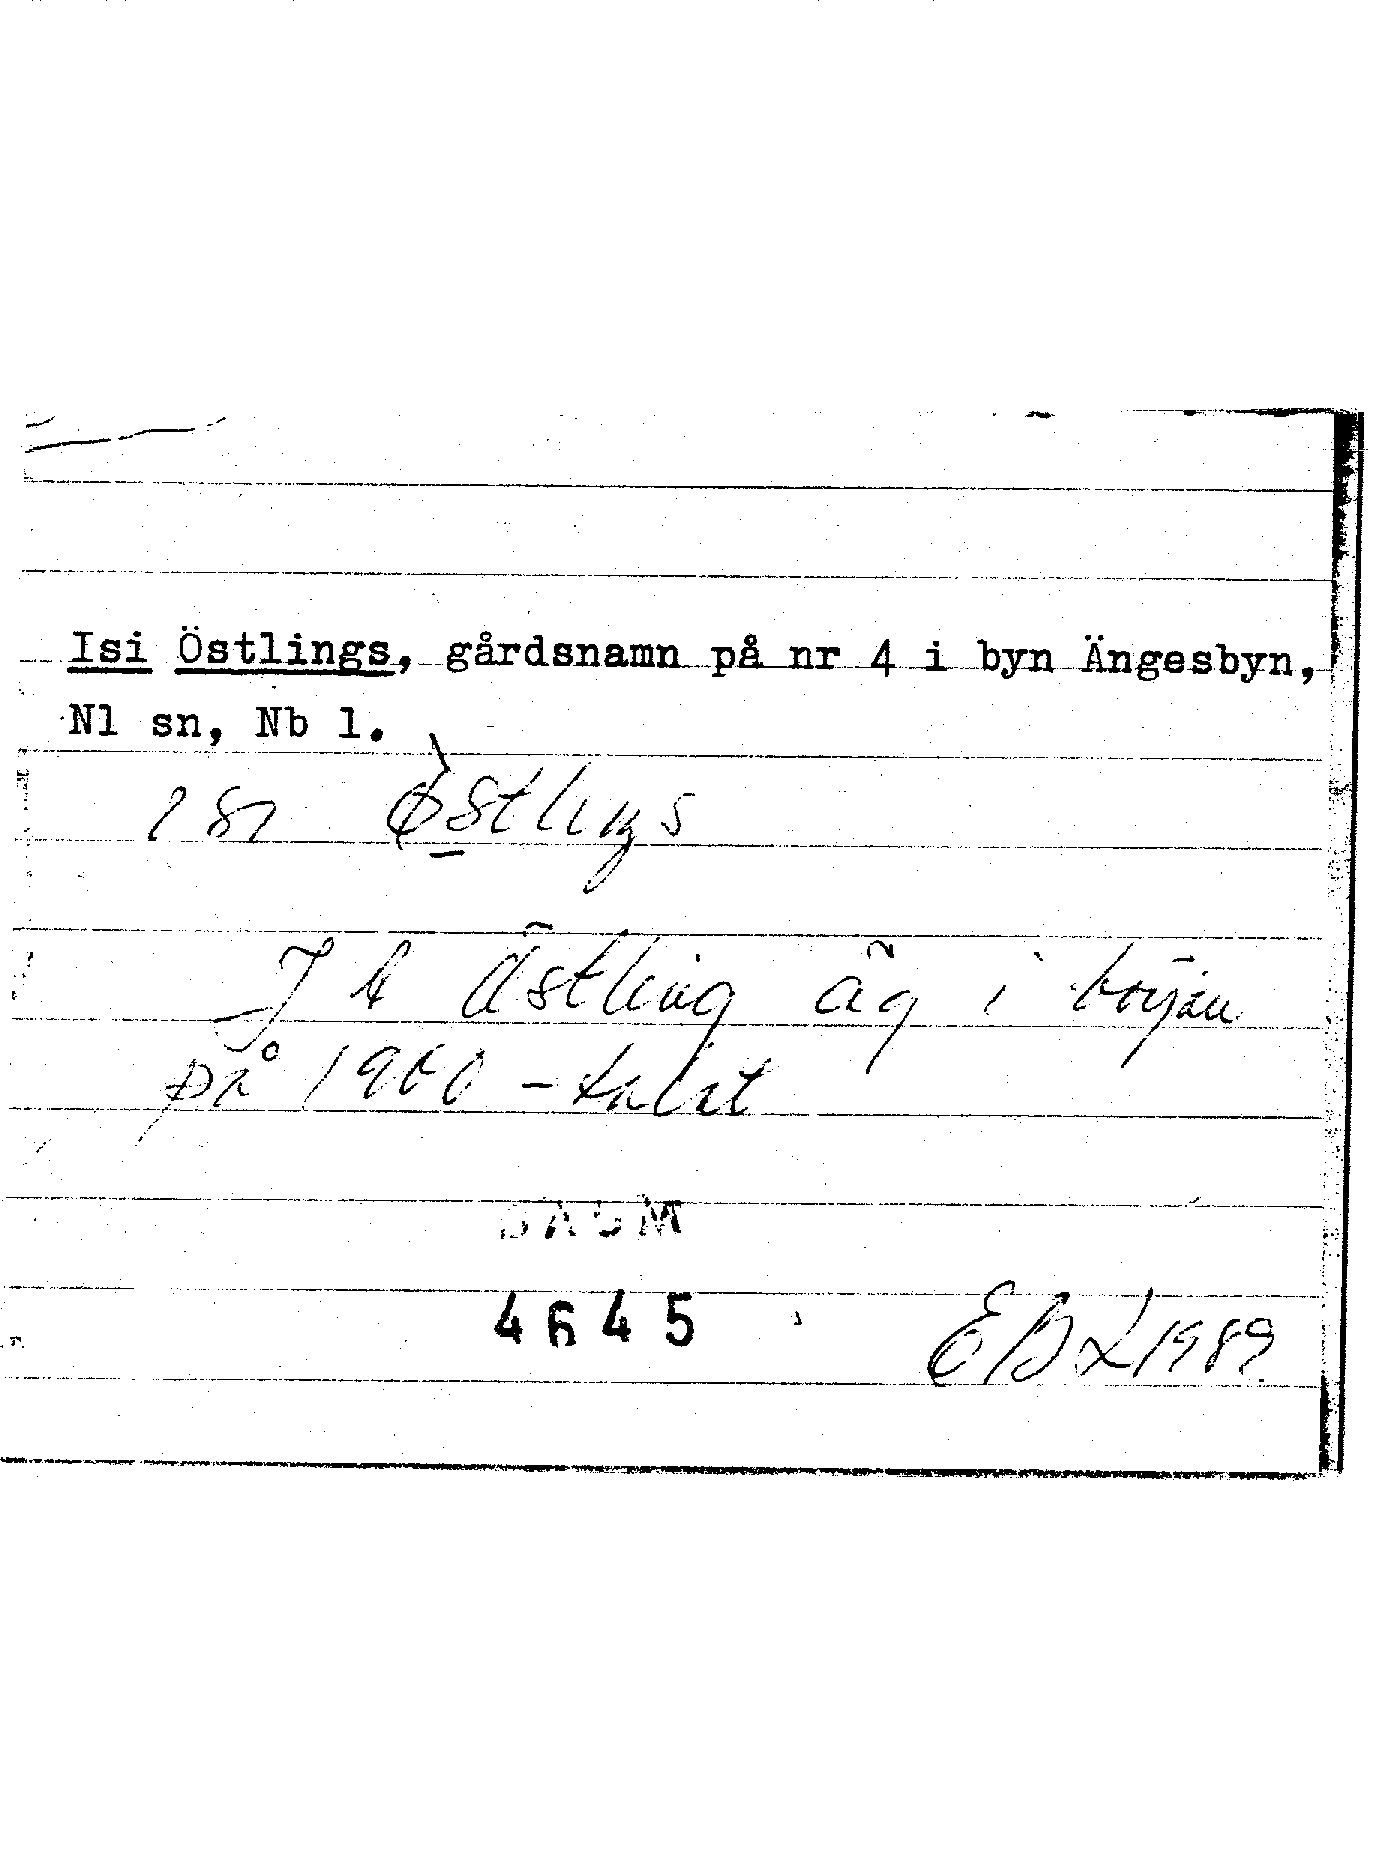 Isi Östlings, gårdsnamn på nr 4 i byn Ängesbyn,
Nl sn, Nb l.
isi Östlings
J A Östling äg i början
på 1900-talet
DAUM
4645
EB 1989